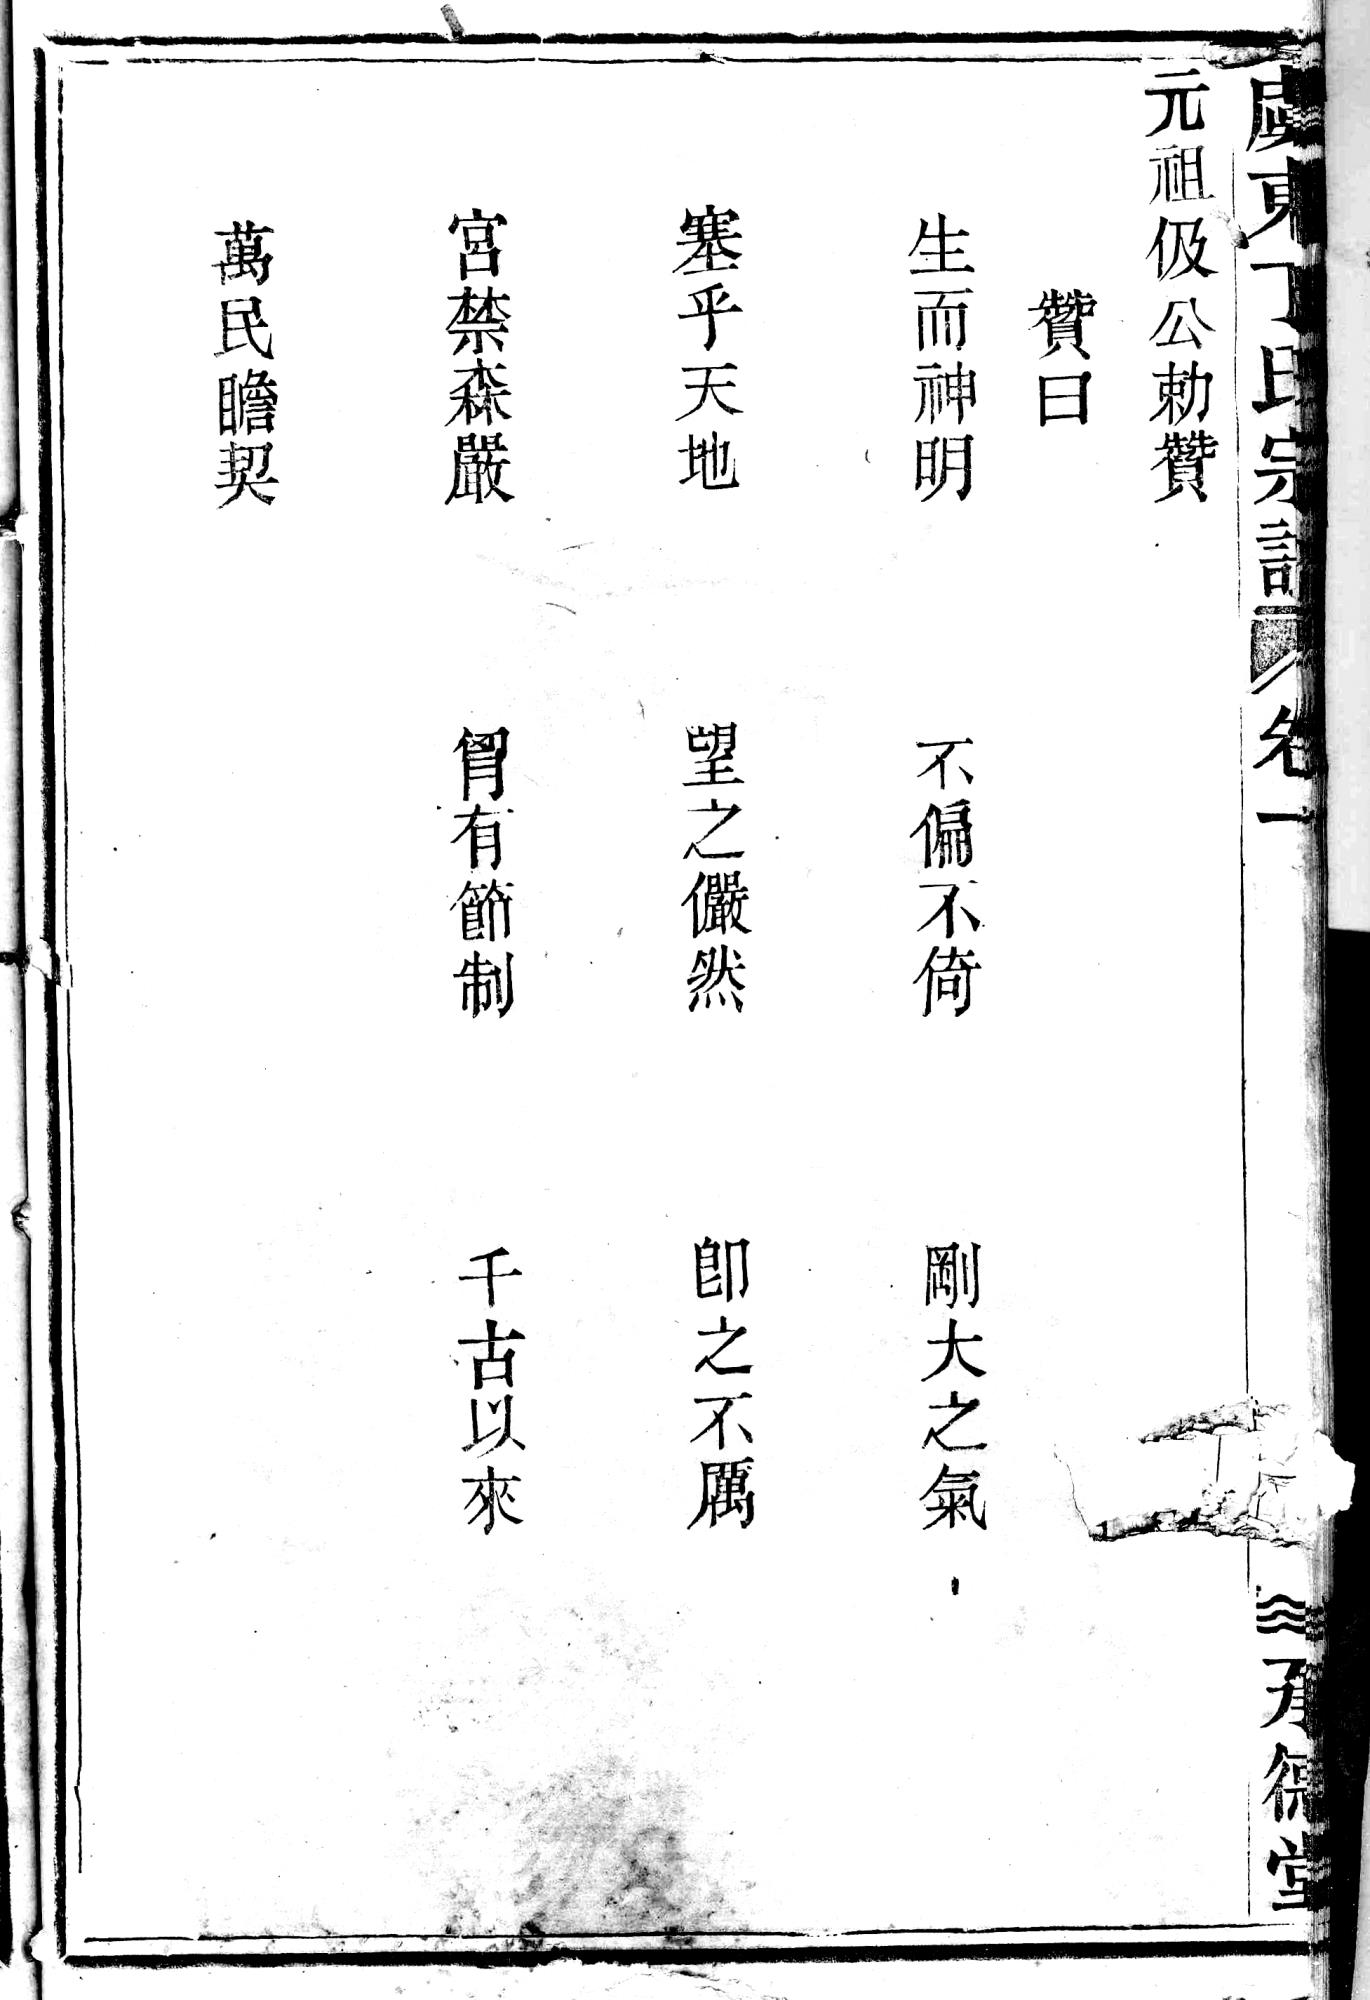 虞東丁氏宗譜 卷一 承德堂
元祖伋公勅贊
贊曰
生而神明 不偏不倚 剛大之氣
塞乎天地 望之儼然 卽之不厲
宮禁森嚴 胥有節制 千古以來
萬民瞻契